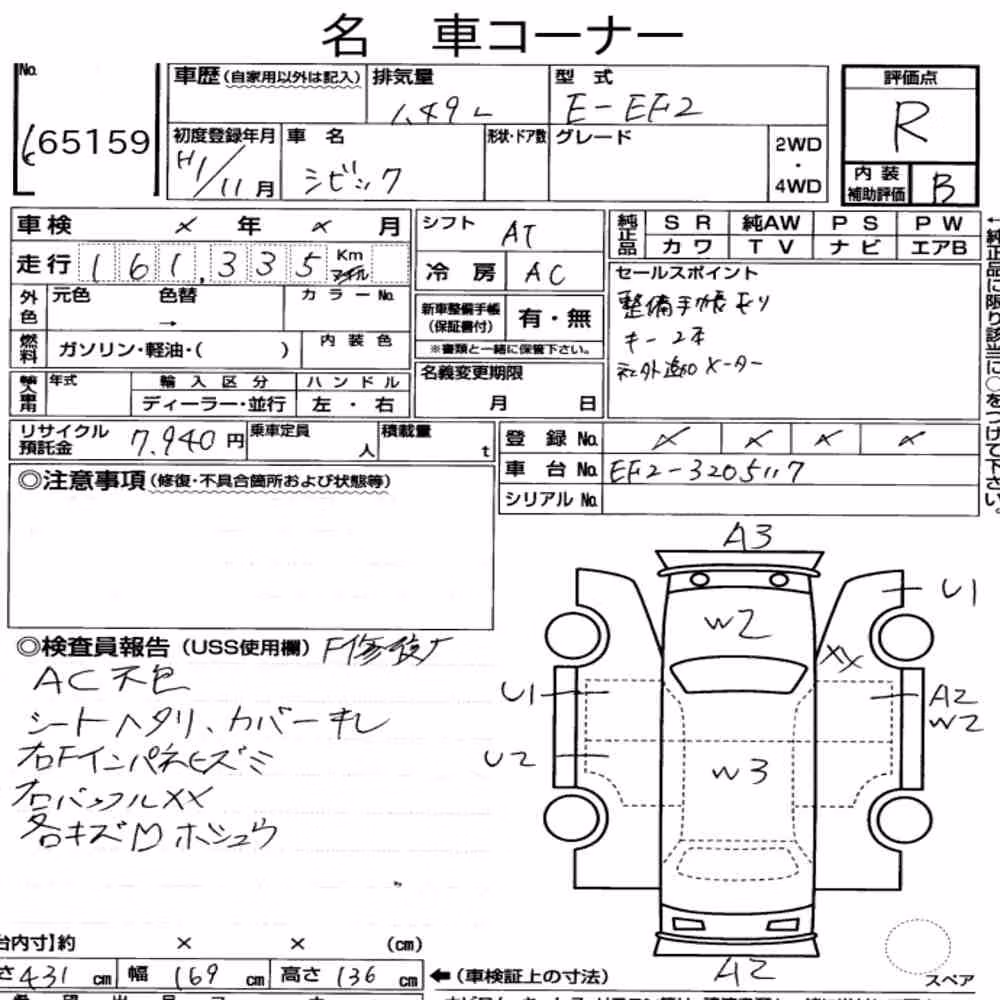 名 車コーナー
No.
65159
車歴(自家用以外は記入)
排気量
1.49L
型式
E-EF2
評価点
R
初度登録年月
H1/11月
車名
シビック
形状・ドア数
グレード
2WD
・
4WD
内装
補助評価
B
車検 × 年 × 月
シフト
AT
純正品
SR 純AW PS PW
カワ TV ナビ エアB
走行 161,335 Km
マイル
冷房
AC
セールスポイント
整備手帳有り
キー2本
社外追加メーター
←純正品に限り該当に○をつけて下さい。
外色
元色 色替 カラーNo.
→
新車整備手帳
(保証書付)
有・無
※書類と一緒に保管下さい。
燃料
ガソリン・軽油・( )
内装色
輸入車用
年式
輸入区分
ハンドル
ディーラー・並行
左・右
名義変更期限
月 日
リサイクル
預託金
7,940円
乗車定員
人
積載量
t
登録No. × × × ×
車台No. EF2-3205117
シリアルNo.
◎注意事項(修復・不具合箇所および状態等)
◎検査員報告(USS使用欄)
AC不色
シートヘタリ、カバーキレ
右Fインパネヒズミ
右バックルXX
各キズ凹ホシュウ
A3
U1
W2
XX
U1
A2
W2
U2
W3
A2
スペア
台内寸】約 × × (cm)
さ431cm 幅169cm 高さ136cm
←(車検証上の寸法)